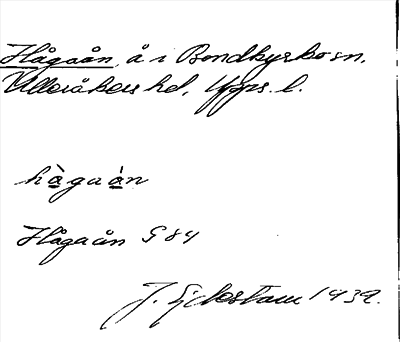 Hågaån, å i Bondkyrko sn.
Ulleråkers hd, Upps. l.
hàgaàn
Hågaån G 84
J. Ejdestam 1939.